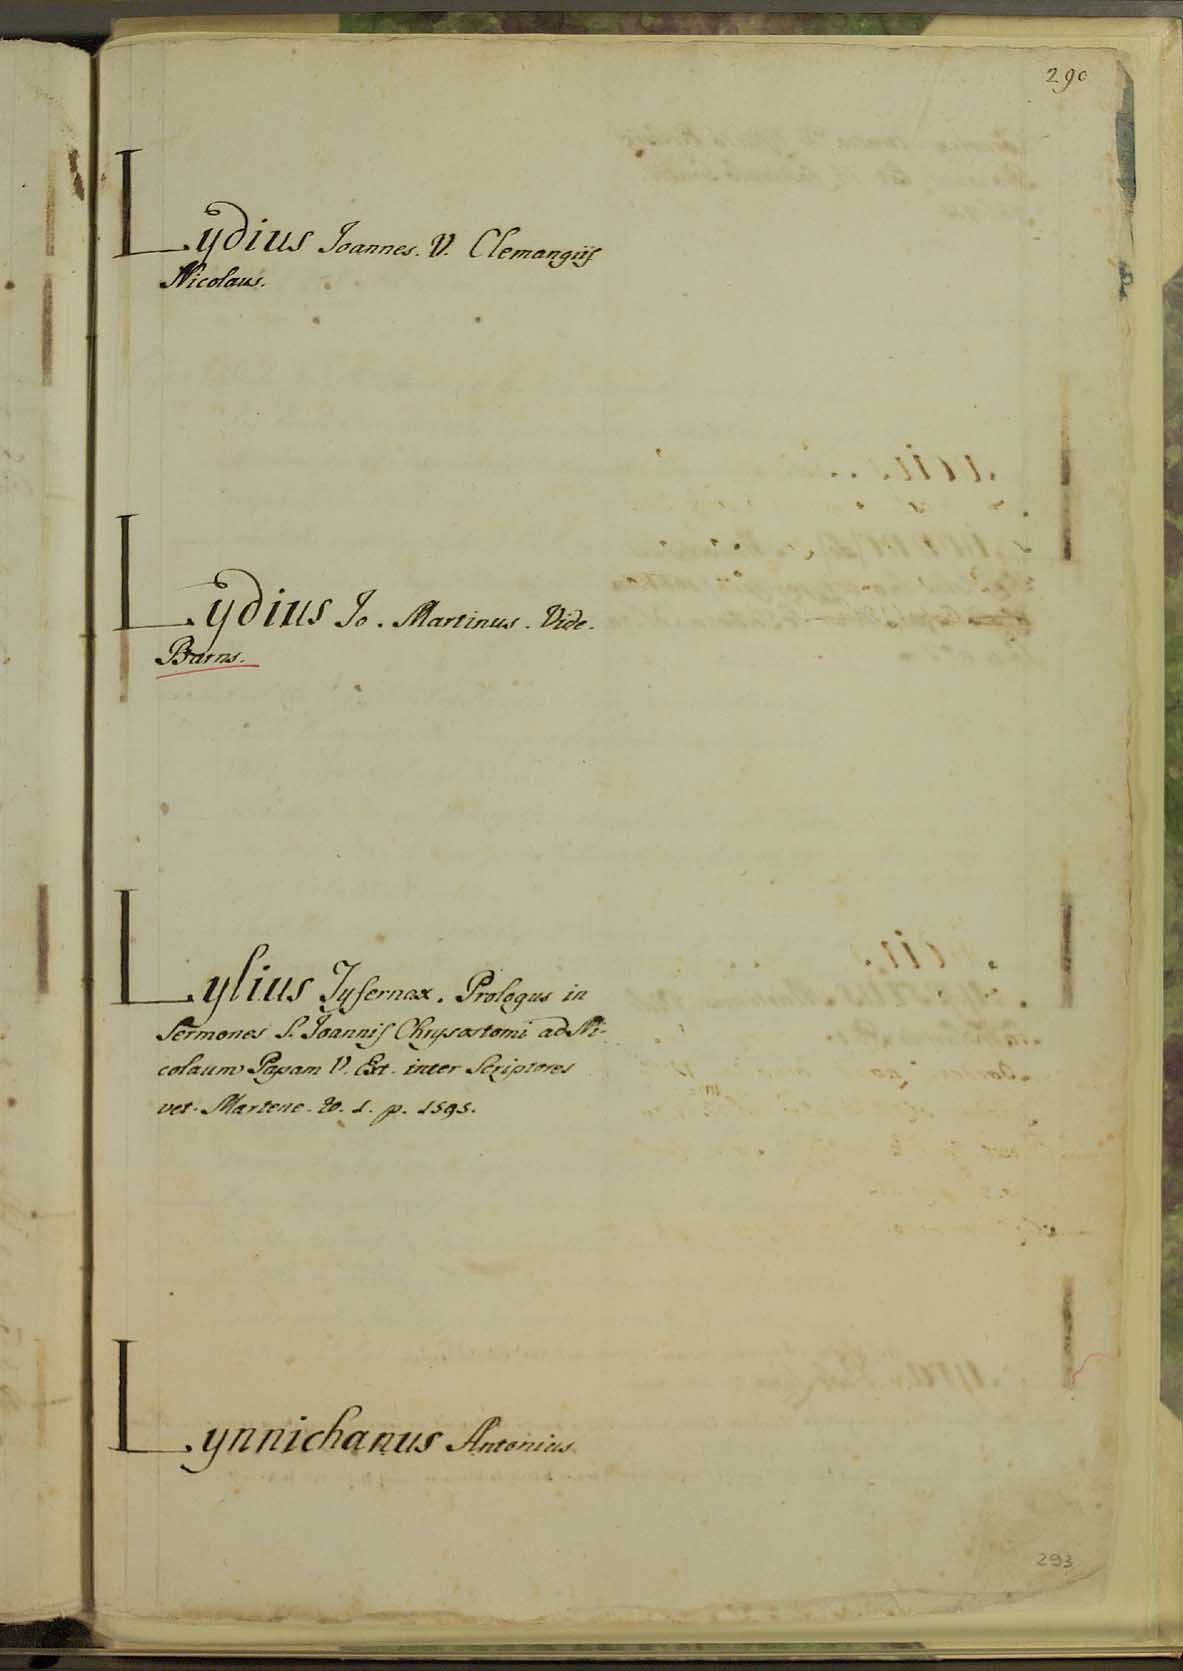 290
Lydius Joannes. V. Clemangijs
Nicolaus.
Lydius Jo. Martinus. Vide.
Barns.
Lylius Tyfernax. Prologus in
Sermones S. Joannis Chrysostomi ad Ni-
colaum Papam V. Ext. inter Scriptores
vet. Martene. to. 1. p. 1595.
Lynnichanus Antonius.
293